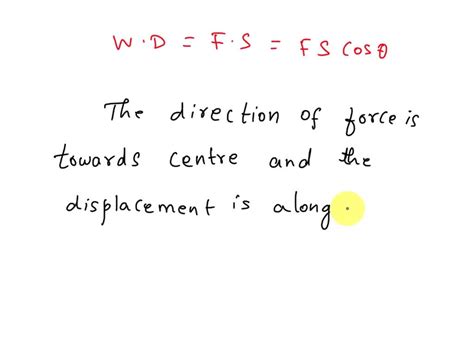 W.D = F.S = FS cosθ
The direction of force is
towards centre and the
displacement is along